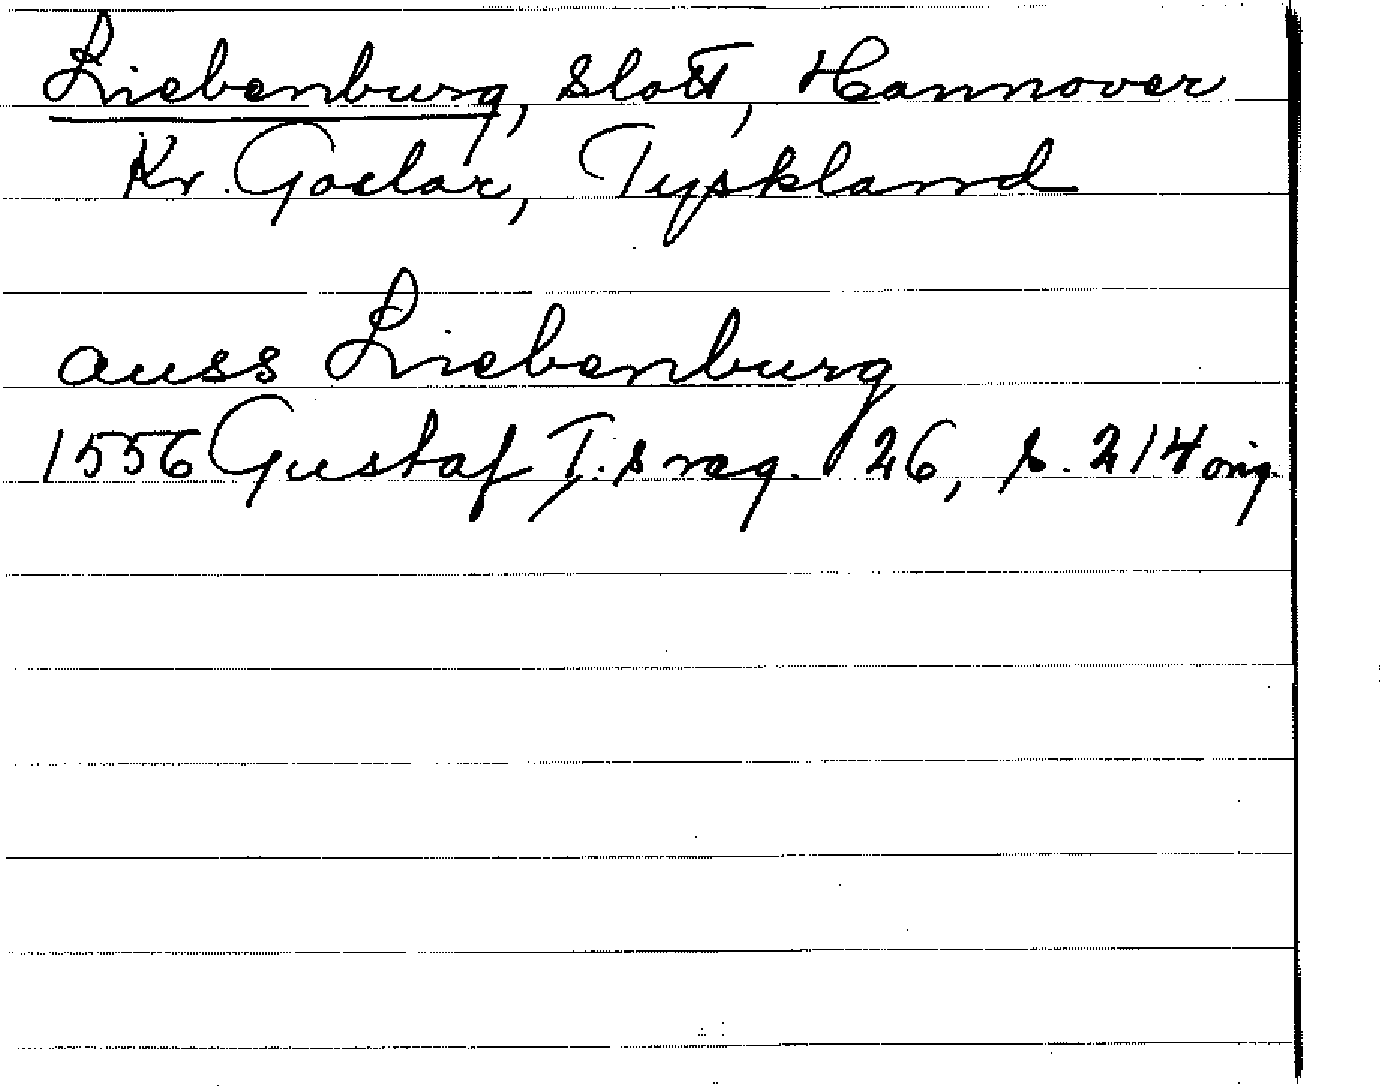 Liebenburg, slott, Hannover
Kr. Goslar, Tyskland
auss Liebenburg
1556 Gustaf I:s reg. 26, s. 214 orig.